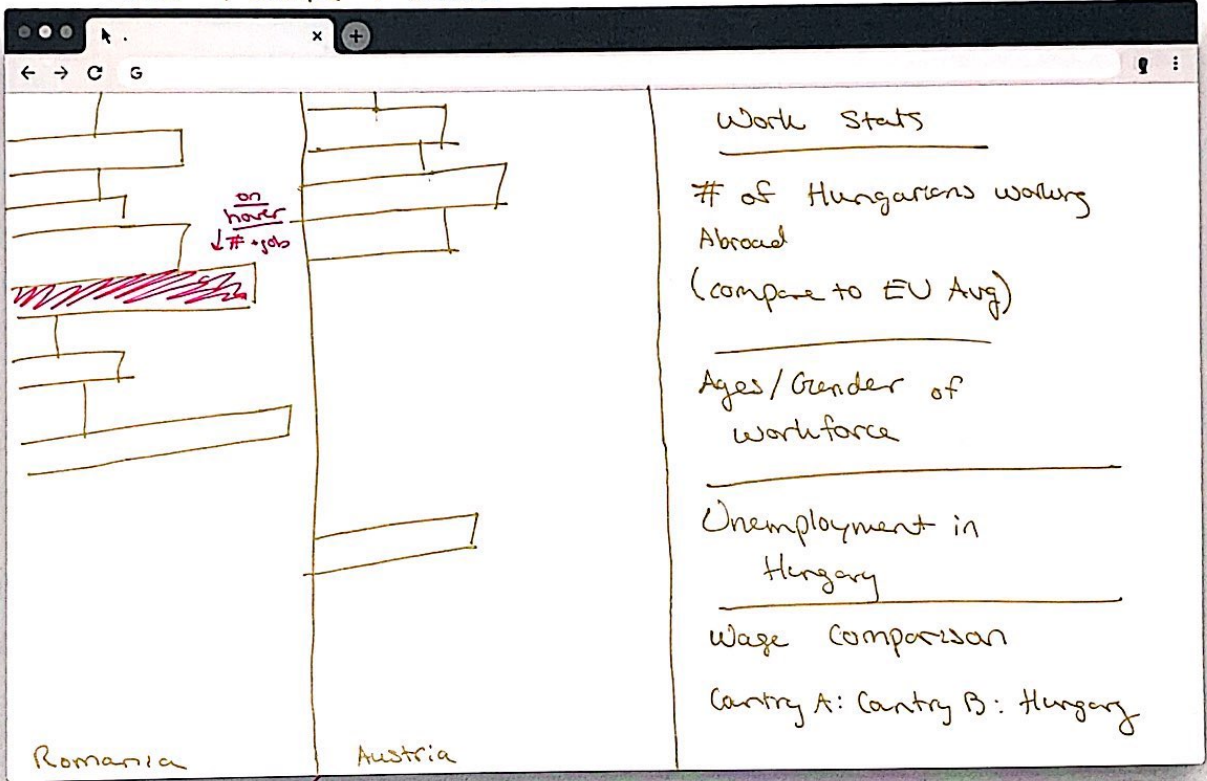 G
on
hover
↓ # + job
Romania
Austria
Work Stats
# of Hungarians working
Abroad
(compare to EU Avg)
Ages/Gender of
workforce
Unemployment in
Hungary
Wage Comparison
Country A: Country B: Hungary